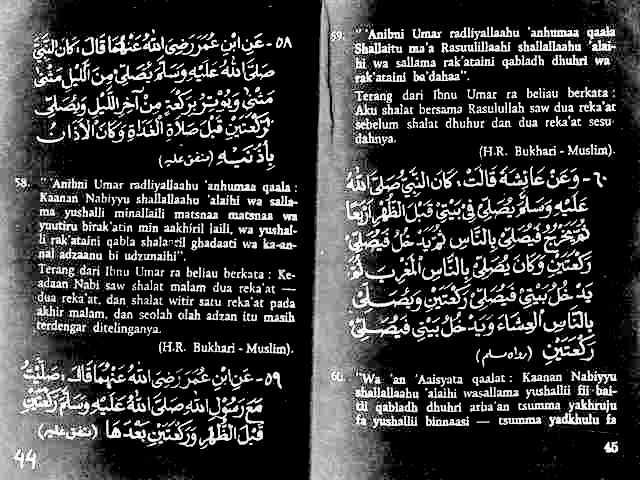 ٥٨- عَنِ ابْنِ عُمَرَ رَضِيَ اللهُ عَنْهُمَا قَالَ: كَانَ النَّبِيُّ
صَلَّى اللهُ عَلَيْهِ وَسَلَّمَ يُصَلِّي مِنَ اللَّيْلِ مَثْنَى
مَثْنَى وَيُوْتِرُ بِرَكْعَةٍ مِنْ آخِرِ اللَّيْلِ وَيُصَلِّي
الرَّكْعَتَيْنِ قَبْلَ صَلَاةِ الْغَدَاةِ وَكَانَ الْأَذَانُ
بِأُذُنَيْهِ (متفق عليه)
58. "'Anibni Umar radliyallaahu 'anhumaa qaala :
Kaanan Nabiyyu shallallaahu 'alaihi wa salla-
ma yushalli minallaili matsnaa matsnaa wa
yuutiru birak'atin min aakhiril laili, wa yushal-
li rak'ataini qabla shalaatil ghadaati wa ka-an-
nal adzaanu bi udzunaihi".
Terang dari Ibnu Umar ra beliau berkata : Ke-
adaan Nabi saw shalat malam dua reka'at —
dua reka'at, dan shalat witir satu reka'at pada
akhir malam, dan seolah olah adzan itu masih
terdengar ditelinganya.
(H.R. Bukhari - Muslim).
٥٩- عَنِ ابْنِ عُمَرَ رَضِيَ اللهُ عَنْهُمَا قَالَ: صَلَّيْتُ
مَعَ رَسُوْلِ اللهِ صَلَّى اللهُ عَلَيْهِ وَسَلَّمَ رَكْعَتَيْنِ
قَبْلَ الظُّهْرِ وَرَكْعَتَيْنِ بَعْدَهَا (متفق عليه)
44
59. "'Anibni Umar radliyallaahu 'anhumaa qaala
Shallaitu ma'a Rasuulillaahi shallallaahu 'alai-
hi wa sallama rak'ataini qabladh dhuhri wa
rak'ataini ba'dahaa".
Terang dari Ibnu Umar ra beliau berkata :
Aku shalat bersama Rasulullah saw dua reka'at
sebelum shalat dhuhur dan dua reka'at sesu
dahnya.
(H.R. Bukhari - Muslim).
٦٠- وَعَنْ عَائِشَةَ قَالَتْ: كَانَ النَّبِيُّ صَلَّى اللهُ
عَلَيْهِ وَسَلَّمَ يُصَلِّي فِي بَيْتِي قَبْلَ الظُّهْرِ أَرْبَعًا
ثُمَّ يَخْرُجُ فَيُصَلِّي بِالنَّاسِ ثُمَّ يَدْخُلُ فَيُصَلِّي
رَكْعَتَيْنِ وَكَانَ يُصَلِّي بِالنَّاسِ الْمَغْرِبَ ثُمَّ
يَدْخُلُ بَيْتِي فَيُصَلِّي رَكْعَتَيْنِ وَيُصَلِّي
بِالنَّاسِ الْعِشَاءَ وَيَدْخُلُ بَيْتِي فَيُصَلِّي
رَكْعَتَيْنِ (رواه مسلم)
60. "Wa 'an 'Aaisyata qaalat : Kaanan Nabiyyu
shallallaahu 'alaihi wasallama yushallii fii bai-
tii qabladh dhuhri arba'an tsumma yakhruju
fa yushallii binnaasi — tsumma yadkhulu fa
45